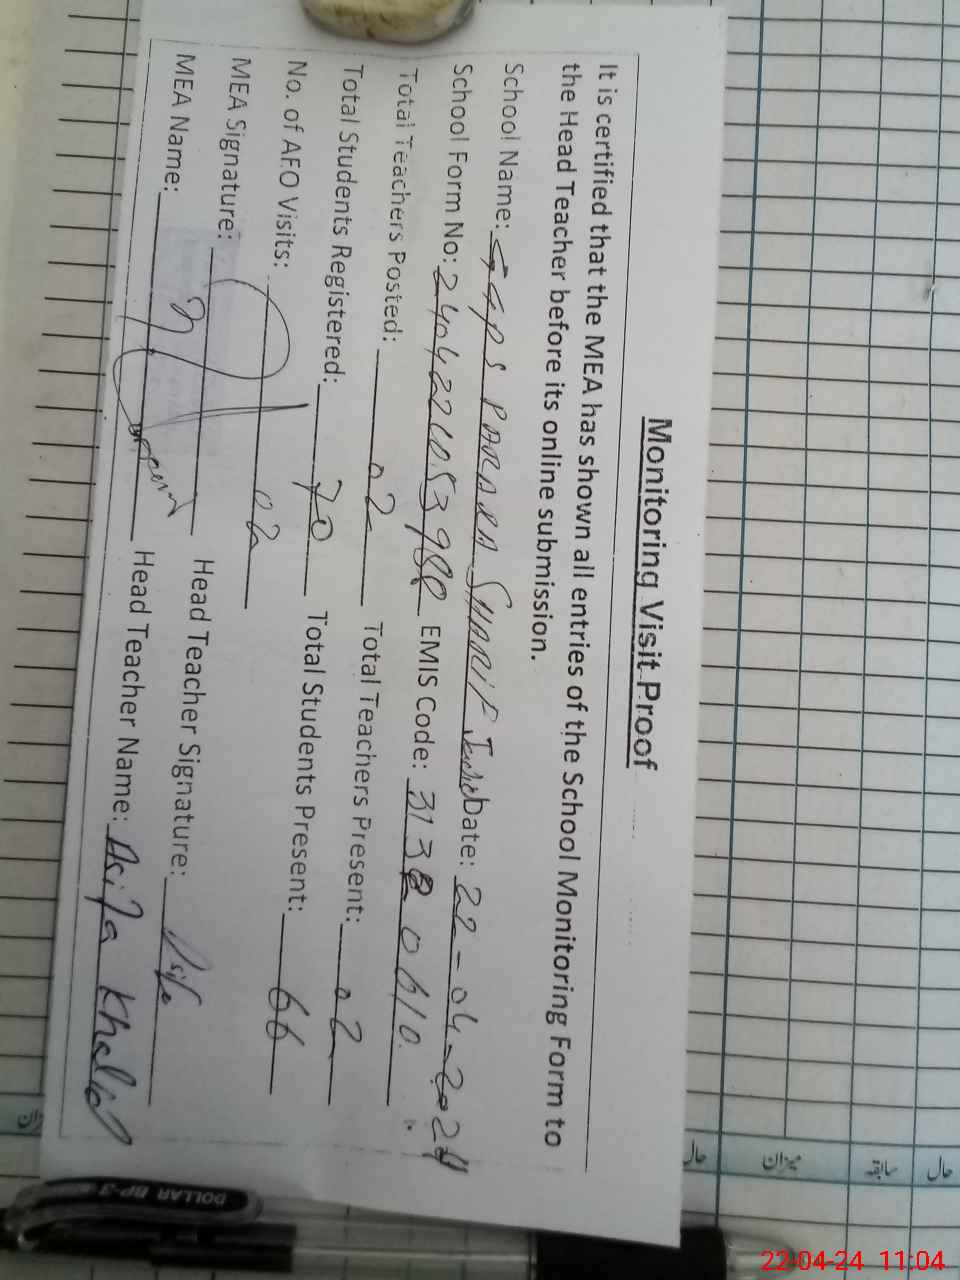 Monitoring Visit Proof
It is certified that the MEA has shown all entries of the School Monitoring Form to
the Head Teacher before its online submission.
School Name: GGPS PARARA SHARIF Date: 22-04-2024
School Form No: EMIS Code:
Total Teachers Posted: 02 Total Teachers Present: 02
Total Students Registered: 70 Total Students Present: 66
No. of AEO Visits: 02
MEA Signature: Head Teacher Signature: Asifa
MEA Name: Head Teacher Name: Asifa Khalid
حال
میزان
سابقہ
حال
میزان
DOLLAR BP-3
22-04-24 11:04